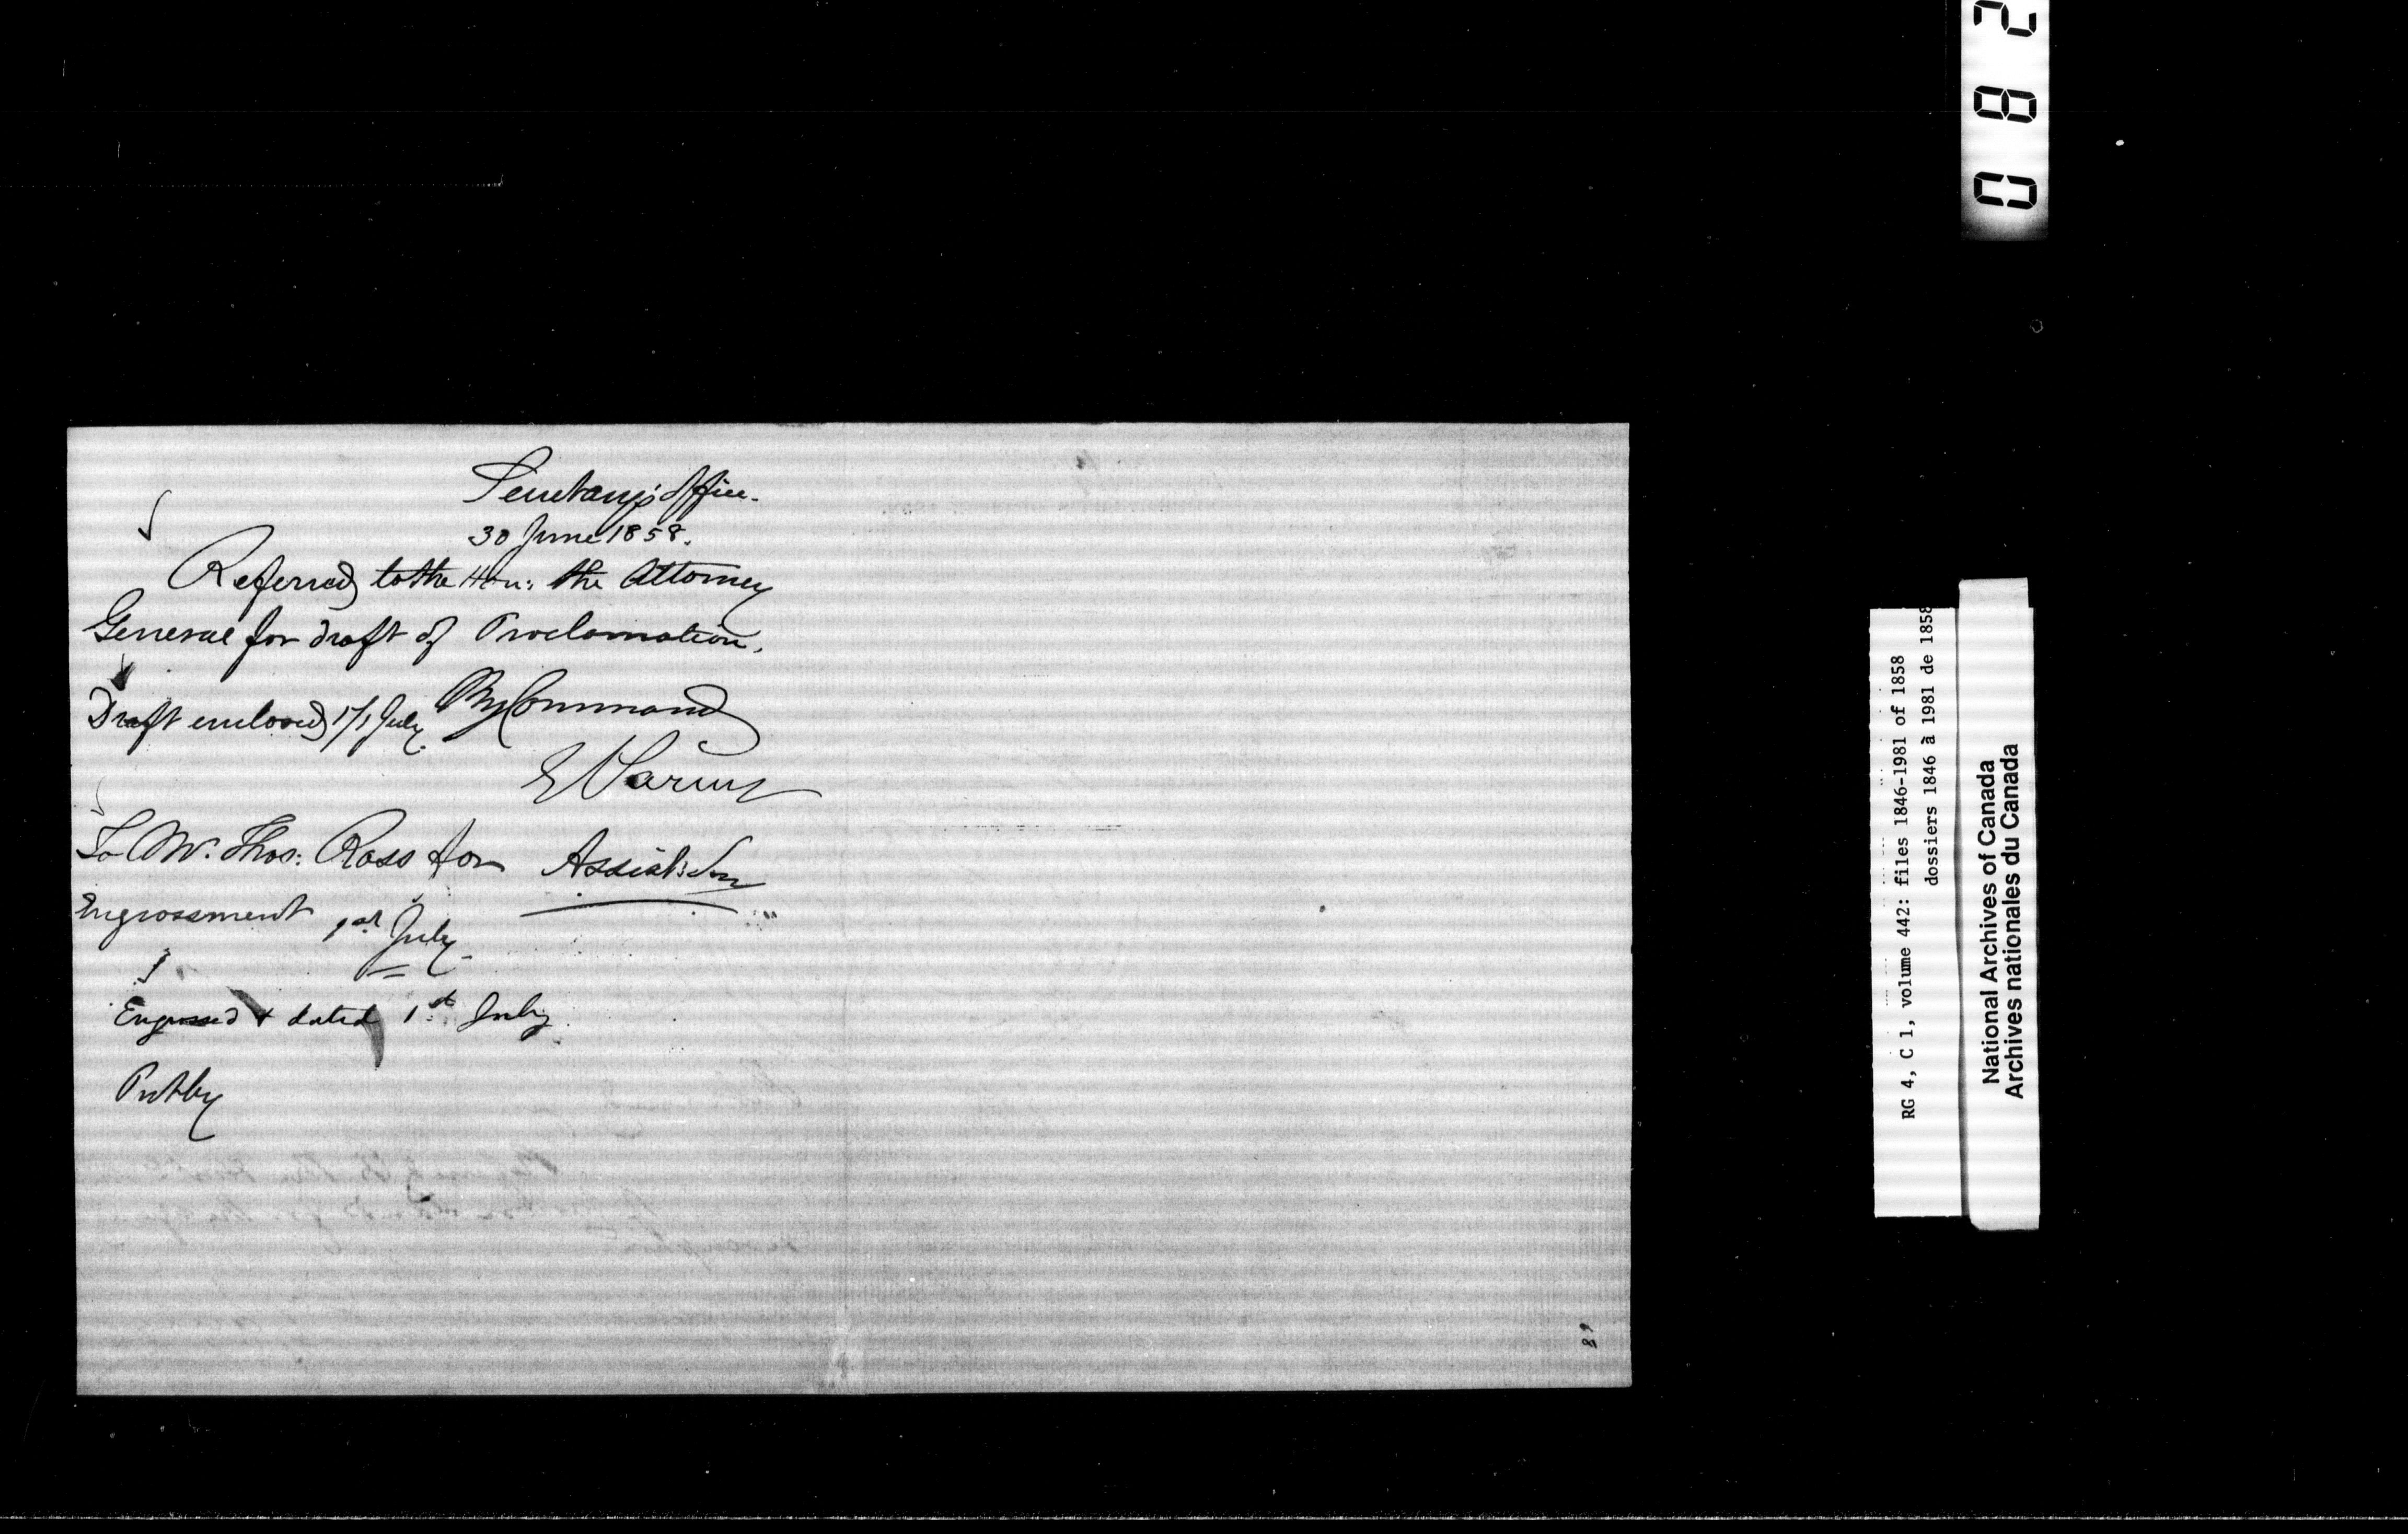 Secretary's Office.
30 June 1858.
Referred to the Hon: the Attorney
General for draft of Proclamation.
By Command
Draft enclosed 1/1 July.
E Parent
Assist: Secy
To Mr. Thos: Ross for
Engrossment 1st July.
Engrossed & dated 1st July.
Put by
89
082
RG 4, C 1, volume 442: files 1846-1981 of 1858
dossiers 1846 à 1981 de 1858
National Archives of Canada
Archives nationales du Canada